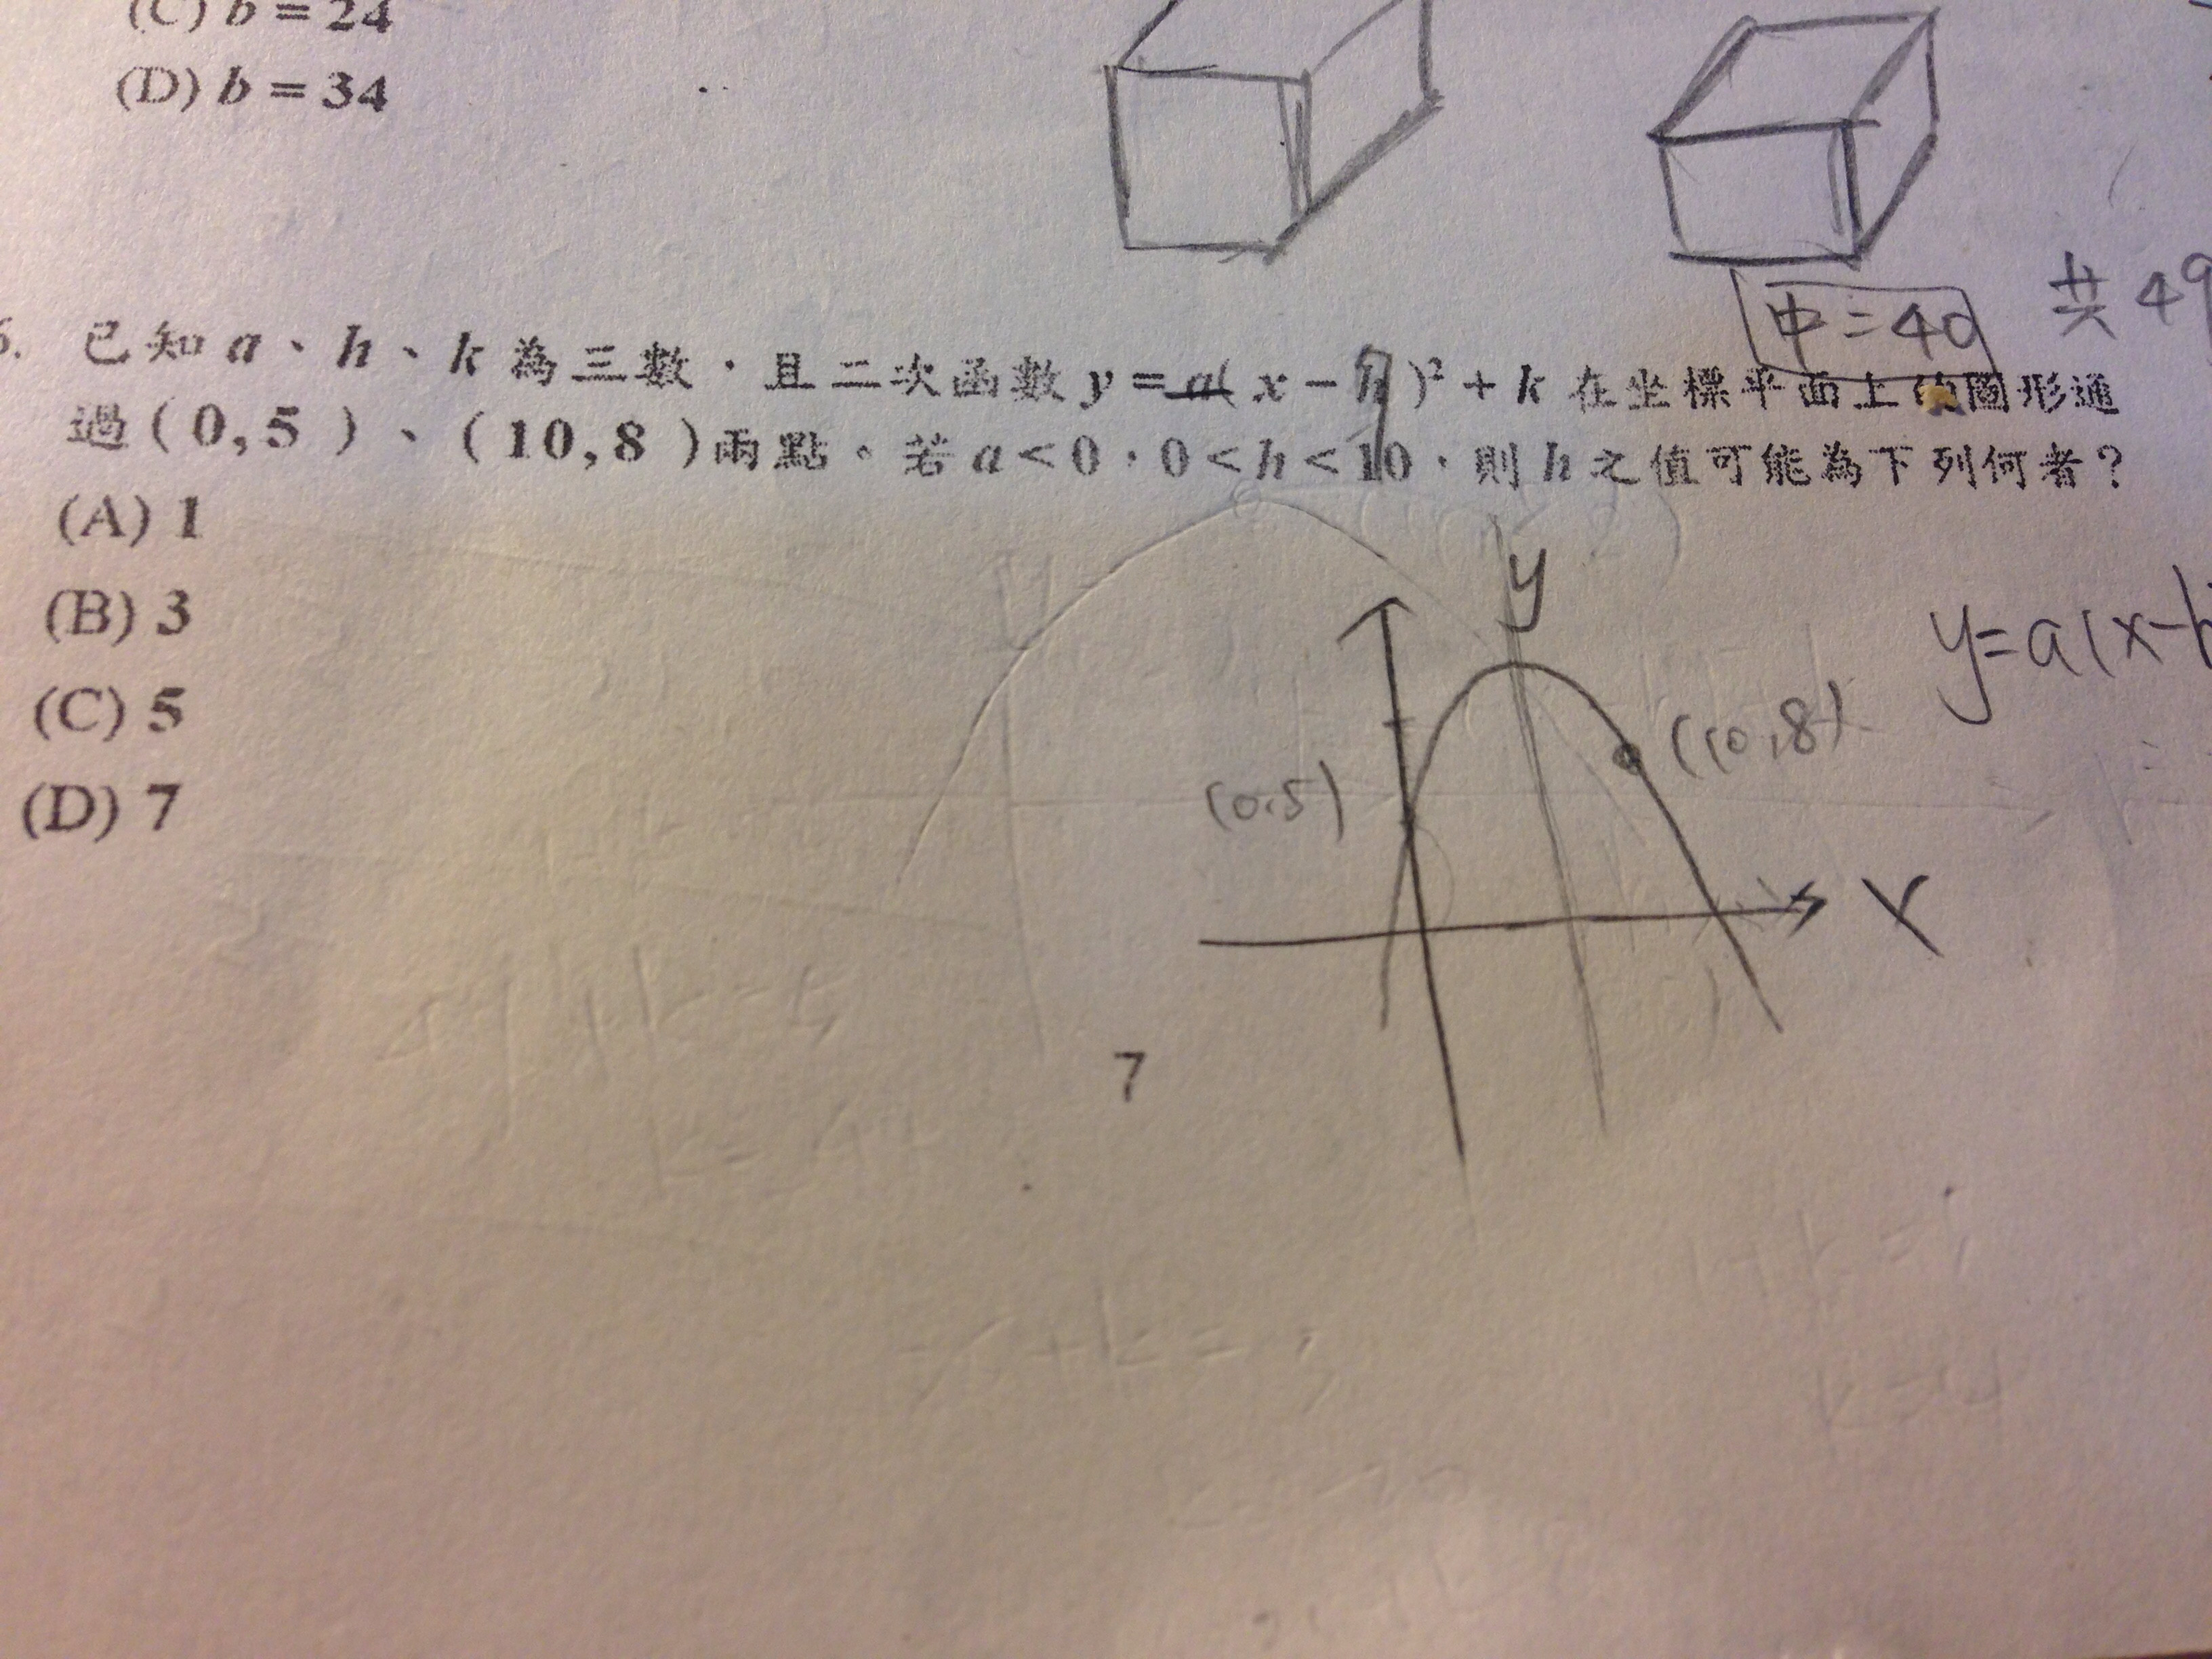 (C) b = 24
(D) b = 34
中=40
共49
6. 已知 a、h、k 為三數，且二次函數 y = a( x − h )² + k 在坐標平面上的圖形通
過( 0,5 )、( 10,8 )兩點。若 a < 0，0 < h < 10，則 h 之值可能為下列何者？
(A) 1
(B) 3
(C) 5
(D) 7
y
y=a(x-h
(10,8)
(0,5)
x
7